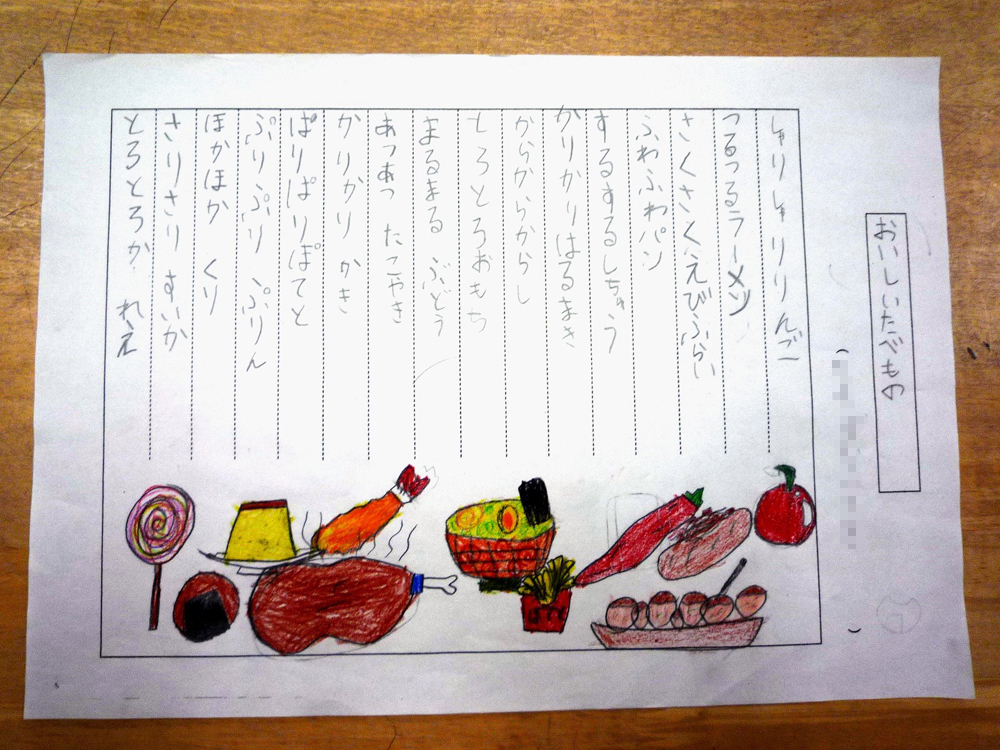 おいしいたべもの
しゃりしゃりりんご
つるつるラーメン
さくさくえびふらい
ふわふわパン
するするしちゅう
かりかりはるまき
からからからし
とろとろおもち
まるまる ぶどう
あつあつ たこやき
かりかり かき
ぱりぱりぽてと
ぷりぷり ぷりん
ほかほか くり
さりさり すいか
とろとろか れえ